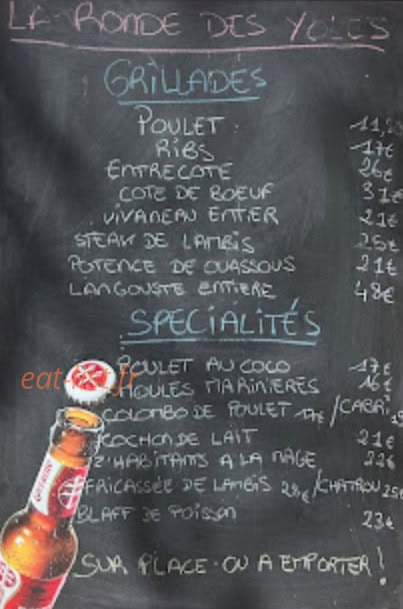 LA RONDE DES YOLES
GRILLADES
POULET
RIBS 17€
ENTRECOTE 26€
COTE DE BOEUF 31€
VIVANEAU ENTIER 21€
STEAK DE LAMBIS 25€
POTENCE DE OUASSOUS 21€
LANGOUSTE ENTIERE 48€
SPECIALITÉS
POULET AU COCO 17€
MOULES MARINIERES 16€
COLOMBO DE POULET 17€ /CABRI
COCHON DE LAIT 21€
Z'HABITANTS A LA NAGE 22€
FRICASSÉE DE LAMBIS /CHATROU 25€
BLAFF DE POISSON 23€
SUR PLACE OU A EMPORTER!